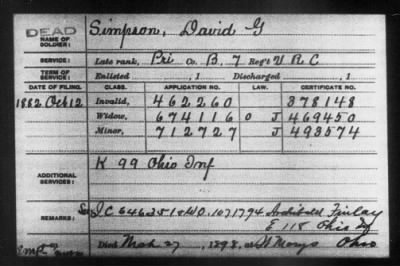 DEAD
NAME OF SOLDIER: Simpson, David G
SERVICE: Late rank, Pri Co. B, 7 Reg't V R C
TERM OF SERVICE: Enlisted , 1 Discharged , 1
DATE OF FILING. CLASS. APPLICATION NO. CERTIFICATE NO.
1882 Oct 12 Invalid, 462260 378148
Widow, 674116 O J 469450
Minor, 712727 J 493574
ADDITIONAL SERVICES: K 99 Ohio Inf
REMARKS: I C 646251 & W O. 1071794 Archibald Finlay
E 118 Ohio Inf
Died Mch 27, 1898, at St Marys Ohio